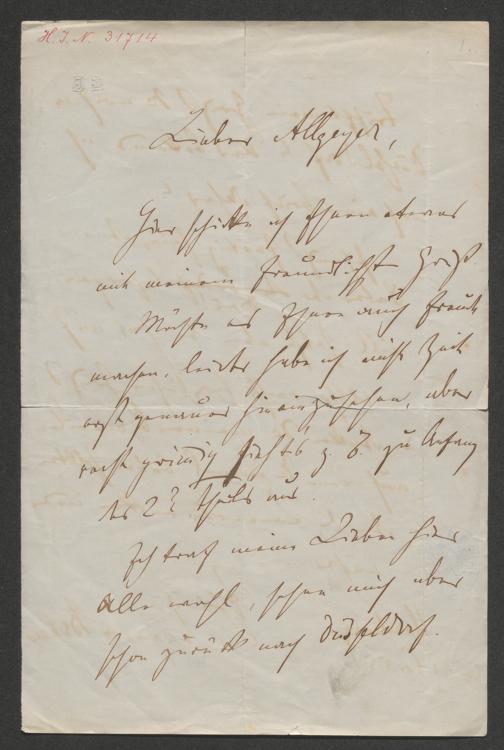 H.I.N. 31714
1.
Lieber Allgeyer,
Hier schicke ich Ihnen etwas
mit meinem freundlichst Gruß
Möchte es Ihnen auch Freude
machen, leider habe ich nicht Zeit
erst genauer hineinzusehen, aber
recht grimmig sieht's z. B. zu Anfang
des 2t Theils aus.
Ich traf meine Lieben hier
alle wohl, sehne mich aber
schon zurück nach Düsseldorf.